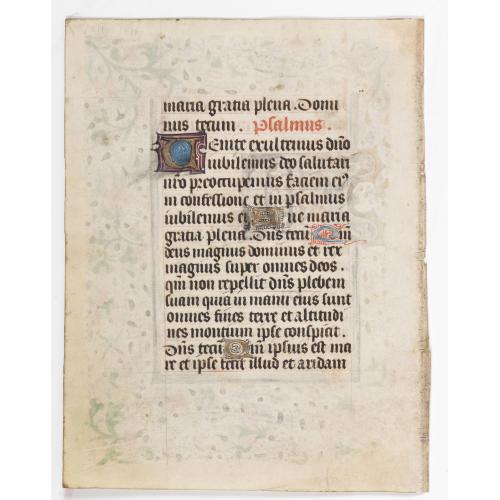 maria gratia plena. Domi
nus tecum. Psalmus.
Venite exultemus dño
iubilemus deo salutari
nr̃o preocupemus faciem eiꝰ
in confessione et in psalmis
iubilemus ei Aue maria
gratia plena. Dñs tecũ Qm̃
deus magnus dominus et rex
magnus super omnes deos.
qm̃ non repellit dñs plebem
suam quia in manu eius sunt
omnes fines terre et altitudi
nes montium ipse conspicit.
Dñs tecũ Qm̃ ipsius est ma
re et ipse fecit illud et aridam